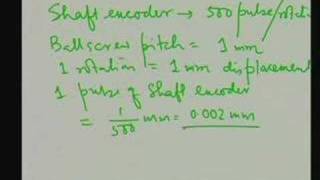 Shaft encoder → 500 pulse/rotation
Ballscrew pitch = 1 mm
1 rotation = 1 mm displacement
1 pulse of shaft encoder
= 1/500 mm = 0.002 mm